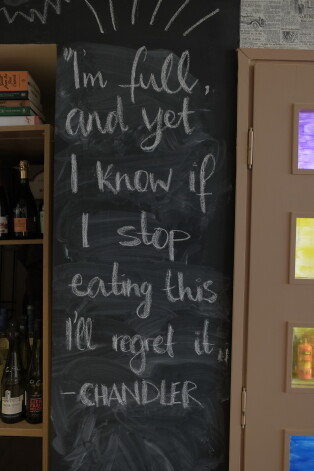 "I'm full,
and yet
I know if
I stop
eating this
I'll regret it"
-CHANDLER